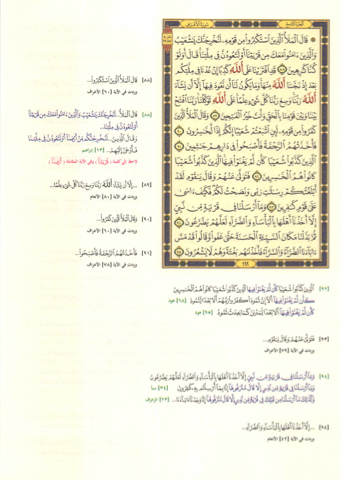 سورة الأعراف
الجزء التاسع
۞ قَالَ الْمَلَأُ الَّذِينَ اسْتَكْبَرُوا مِن قَوْمِهِ لَنُخْرِجَنَّكَ يَا شُعَيْبُ
وَالَّذِينَ آمَنُوا مَعَكَ مِن قَرْيَتِنَا أَوْ لَتَعُودُنَّ فِي مِلَّتِنَا قَالَ أَوَلَوْ
كُنَّا كَارِهِينَ ۝ قَدِ افْتَرَيْنَا عَلَى اللَّهِ كَذِبًا إِنْ عُدْنَا فِي مِلَّتِكُم
بَعْدَ إِذْ نَجَّانَا اللَّهُ مِنْهَا وَمَا يَكُونُ لَنَا أَن نَّعُودَ فِيهَا إِلَّا أَن يَشَاءَ
اللَّهُ رَبُّنَا وَسِعَ رَبُّنَا كُلَّ شَيْءٍ عِلْمًا عَلَى اللَّهِ تَوَكَّلْنَا رَبَّنَا افْتَحْ
بَيْنَنَا وَبَيْنَ قَوْمِنَا بِالْحَقِّ وَأَنتَ خَيْرُ الْفَاتِحِينَ ۝ وَقَالَ الْمَلَأُ الَّذِينَ
كَفَرُوا مِن قَوْمِهِ لَئِنِ اتَّبَعْتُمْ شُعَيْبًا إِنَّكُمْ إِذًا لَّخَاسِرُونَ ۝
فَأَخَذَتْهُمُ الرَّجْفَةُ فَأَصْبَحُوا فِي دَارِهِمْ جَاثِمِينَ ۝
الَّذِينَ كَذَّبُوا شُعَيْبًا كَأَن لَّمْ يَغْنَوْا فِيهَا الَّذِينَ كَذَّبُوا شُعَيْبًا
كَانُوا هُمُ الْخَاسِرِينَ ۝ فَتَوَلَّىٰ عَنْهُمْ وَقَالَ يَا قَوْمِ لَقَدْ
أَبْلَغْتُكُمْ رِسَالَاتِ رَبِّي وَنَصَحْتُ لَكُمْ فَكَيْفَ آسَىٰ
عَلَىٰ قَوْمٍ كَافِرِينَ ۝ وَمَا أَرْسَلْنَا فِي قَرْيَةٍ مِّن نَّبِيٍّ
إِلَّا أَخَذْنَا أَهْلَهَا بِالْبَأْسَاءِ وَالضَّرَّاءِ لَعَلَّهُمْ يَضَّرَّعُونَ ۝
ثُمَّ بَدَّلْنَا مَكَانَ السَّيِّئَةِ الْحَسَنَةَ حَتَّىٰ عَفَوا وَّقَالُوا قَدْ مَسَّ
آبَاءَنَا الضَّرَّاءُ وَالسَّرَّاءُ فَأَخَذْنَاهُم بَغْتَةً وَهُمْ لَا يَشْعُرُونَ ۝
١٦٢
[٨٨] قَالَ الْمَلَأُ الَّذِينَ اسْتَكْبَرُوا...
وردت في الآية [٩٠] الأعراف
[٨٨] قَالَ الْمَلَأُ الَّذِينَ اسْتَكْبَرُوا... لَنُخْرِجَنَّكَ يَا شُعَيْبُ وَالَّذِينَ آمَنُوا مَعَكَ مِن قَرْيَتِنَا
أَوْ لَتَعُودُنَّ فِي مِلَّتِنَا...
وَقَالَ الَّذِينَ... لَنُخْرِجَنَّكُم مِّنْ أَرْضِنَا أَوْ لَتَعُودُنَّ فِي مِلَّتِنَا
فَأَوْحَىٰ إِلَيْهِمْ... [١٣] إبراهيم
[٨٩] ... إِلَّا أَن يَشَاءَ اللَّهُ رَبُّنَا وَسِعَ رَبُّنَا كُلَّ شَيْءٍ عِلْمًا...
وردت في الآية [٨٠] الأنعام
[٩٠] وَقَالَ الْمَلَأُ الَّذِينَ كَفَرُوا...
وردت في الآية [٩٠] الأعراف
[٩١] فَأَخَذَتْهُمُ الرَّجْفَةُ فَأَصْبَحُوا...
وردت في الآية [٧٨] الأعراف
[٩٢] الَّذِينَ كَذَّبُوا شُعَيْبًا كَأَن لَّمْ يَغْنَوْا فِيهَا الَّذِينَ كَذَّبُوا شُعَيْبًا كَانُوا هُمُ الْخَاسِرِينَ
كَأَن لَّمْ يَغْنَوْا فِيهَا أَلَا إِنَّ ثَمُودَ كَفَرُوا رَبَّهُمْ أَلَا بُعْدًا لِّثَمُودَ [٦٨] هود
كَأَن لَّمْ يَغْنَوْا فِيهَا أَلَا بُعْدًا لِّمَدْيَنَ كَمَا بَعِدَتْ ثَمُودُ [٩٥] هود
[٩٣] فَتَوَلَّىٰ عَنْهُمْ وَقَالَ يَا قَوْمِ...
وردت في الآية [٧٩] الأعراف
[٩٤] وَمَا أَرْسَلْنَا فِي قَرْيَةٍ مِّن نَّبِيٍّ إِلَّا أَخَذْنَا أَهْلَهَا بِالْبَأْسَاءِ وَالضَّرَّاءِ لَعَلَّهُمْ يَضَّرَّعُونَ
وَمَا أَرْسَلْنَا فِي قَرْيَةٍ مِّن نَّذِيرٍ إِلَّا قَالَ مُتْرَفُوهَا إِنَّا بِمَا أُرْسِلْتُم بِهِ كَافِرُونَ [٣٤] سبأ
وَكَذَٰلِكَ مَا أَرْسَلْنَا مِن قَبْلِكَ فِي قَرْيَةٍ مِّن نَّذِيرٍ إِلَّا قَالَ مُتْرَفُوهَا إِنَّا وَجَدْنَا آبَاءَنَا... [٢٣] الزخرف
[٩٤] ... إِلَّا أَخَذْنَا أَهْلَهَا بِالْبَأْسَاءِ وَالضَّرَّاءِ...
وردت في الآية [٤٢] الأنعام